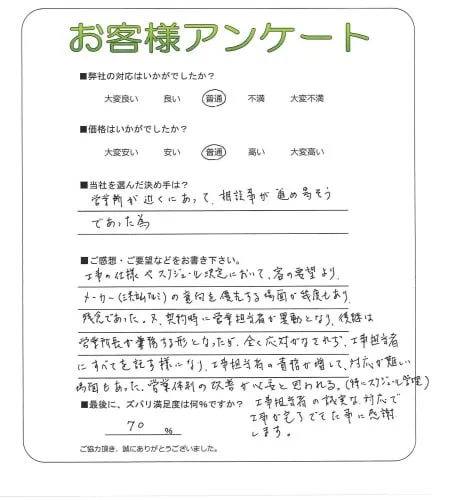 お客様アンケート
■弊社の対応はいかがでしたか?
大変良い 良い 普通 不満 大変不満
■価格はいかがでしたか?
大変安い 安い 普通 高い 大変高い
■当社を選んだ決め手は?
営業所が近くにあって、相談事が進め易そう
であった為
■ご感想・ご要望などをお書き下さい。
工事の仕様やスケジュール決定において、客の要望より、
メーカー(三協アルミ)の意向を優先する場面が幾度もあり、
残念であった。又、契約時に営業担当者が異動となり、後継は
営業所長が兼務する形となったが、全く応対がなされず、工事担当者
にすべてを託す様になり、工事担当者の責務が増して、対応が難しい
場面もあった。営業体制の改善が必要と思われる。(特にスケジュール管理)
■最後に、ズバリ満足度は何%ですか?
70 %
工事担当者の誠実な対応で
工事が完了できた事に感謝
します。
ご協力頂き、誠にありがとうございました。